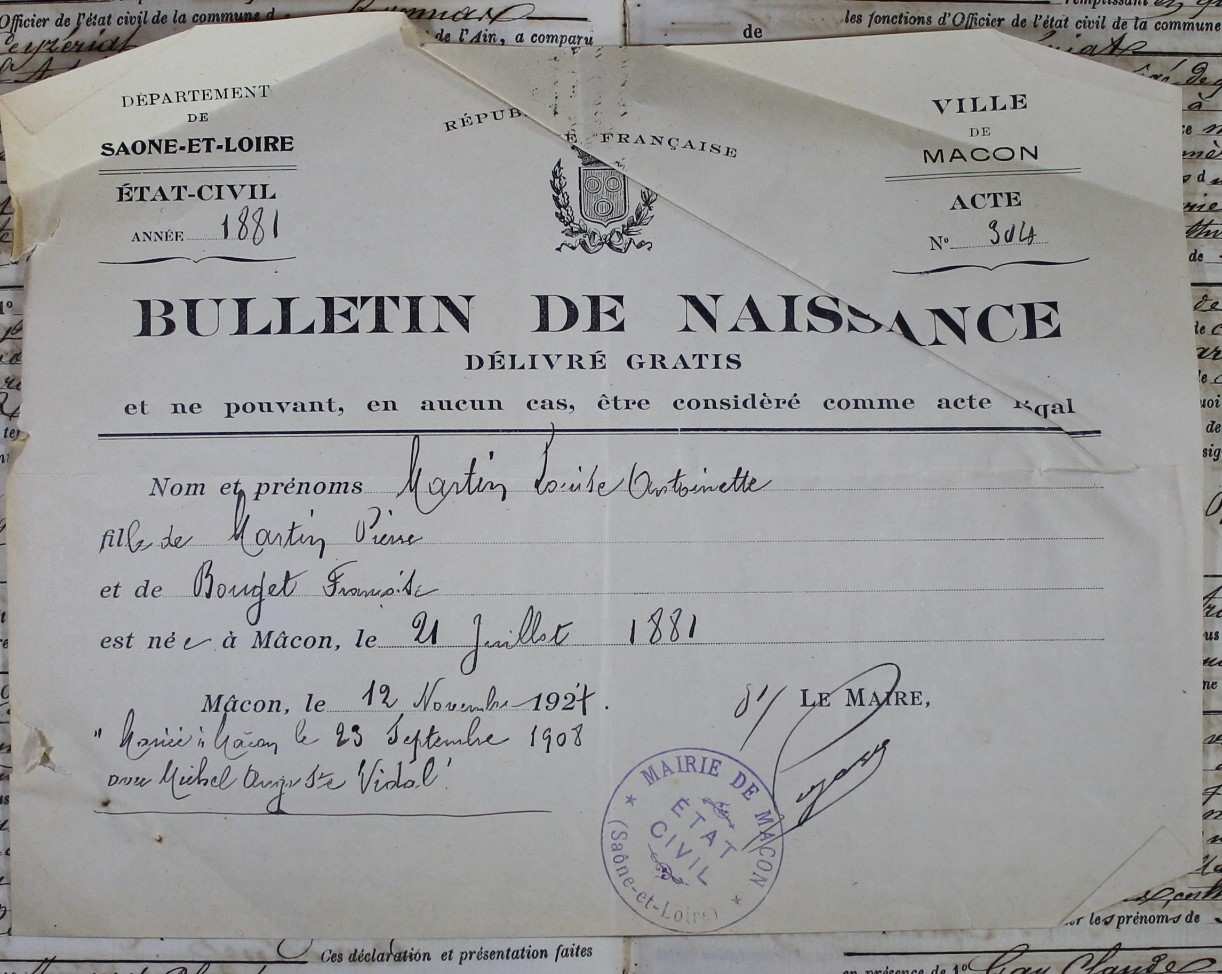 Officier de l'état civil de la commune d
de l'Ain, a comparu
de
les fonctions d'Officier de l'état civil de la commune
DÉPARTEMENT
DE
SAONE-ET-LOIRE
ÉTAT-CIVIL
ANNÉE 1881
FRANÇAISE
VILLE
DE
MACON
ACTE
N° 304
BULLETIN DE NAISSANCE
DÉLIVRÉ GRATIS
et ne pouvant, en aucun cas, être considèré comme acte
Nom et prénoms Martin Louise Antoinette
fille de Martin Pierre
et de Bouget Françoise
est née à Mâcon, le 21 Juillet 1881
Mâcon, le 12 Novembre 1927.
LE MAIRE,
"Mariée à Mâcon le 23 Septembre 1908
avec Michel Auguste Vidal"
MAIRIE DE MACON
ÉTAT
CIVIL
(Saône-et-Loire)
Ces déclaration et présentation faites
les prénoms de
en présence de 1°